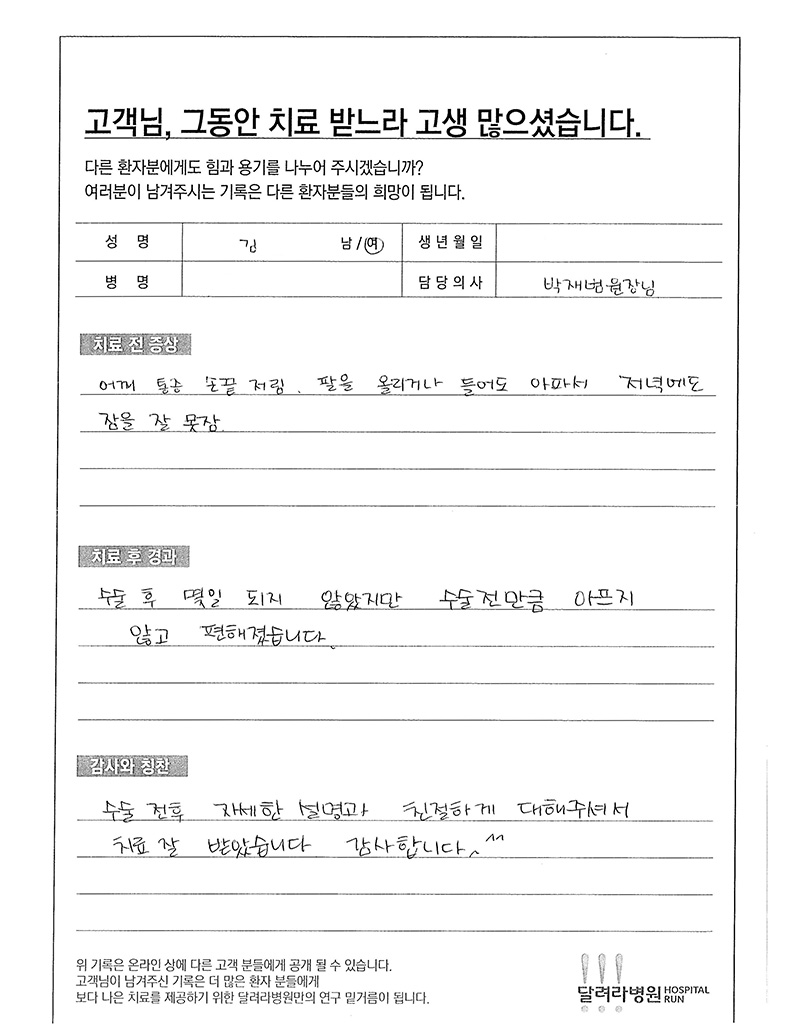 고객님, 그동안 치료 받느라 고생 많으셨습니다.
다른 환자분에게도 힘과 용기를 나누어 주시겠습니까?
여러분이 남겨주시는 기록은 다른 환자분들의 희망이 됩니다.
성 명 김 남/여 생년월일
병 명 담당의사 박재범원장님
치료 전 증상
어깨 통증 손끝 저림. 팔을 올리거나 들어도 아파서 저녁에도
잠을 잘 못잠.
치료 후 경과
수술 후 몇일 되지 않았지만 수술전만큼 아프지
않고 편해졌습니다.
감사와 칭찬
수술 전후 자세한 설명과 친절하게 대해주셔서
치료 잘 받았습니다 감사합니다. ^^
위 기록은 온라인 상에 다른 고객 분들에게 공개 될 수 있습니다.
고객님이 남겨주신 기록은 더 많은 환자 분들에게
보다 나은 치료를 제공하기 위한 달려라병원만의 연구 밑거름이 됩니다.
달려라병원 HOSPITAL RUN